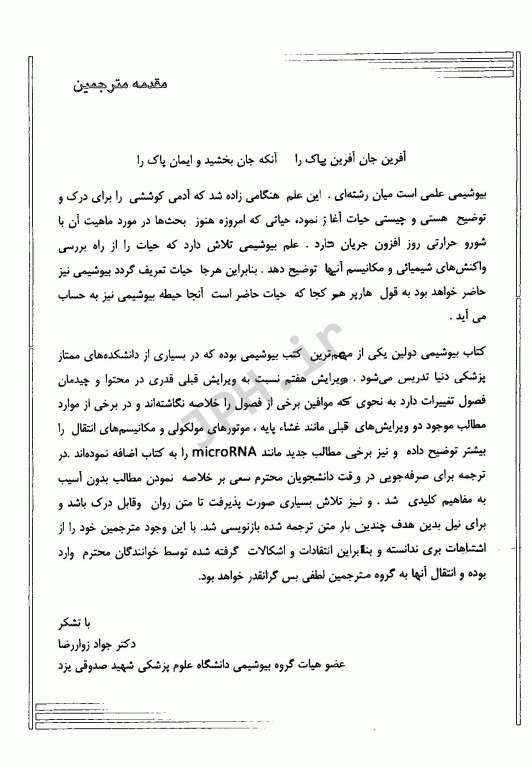 مقدمه مترجمین
آفرین جان آفرین پاک را آنکه جان بخشید و ایمان پاک را
بیوشیمی علمی است میان رشته‌ای . این علم هنگامی زاده شد که آدمی کوششی را برای درک و
توضیح هستی و چیستی حیات آغاز نمود، حیاتی که امروزه هنوز بحث‌ها در مورد ماهیت آن با
شورو حرارتی روز افزون جریان دارد . علم بیوشیمی تلاش دارد که حیات را از راه بررسی
واکنش‌های شیمیائی و مکانیسم آنها توضیح دهد . بنابراین هرجا حیات تعریف گردد بیوشیمی نیز
حاضر خواهد بود به قول هارپر هر کجا که حیات حاضر است آنجا حیطه بیوشیمی نیز به حساب
می آید .
کتاب بیوشیمی دولین یکی از مهم‌ترین کتب بیوشیمی بوده که در بسیاری از دانشکده‌های ممتاز
پزشکی دنیا تدریس می‌شود . ویرایش هفتم نسبت به ویرایش قبلی قدری در محتوا و چیدمان
فصول تغییرات دارد به نحوی که موافین برخی از فصول را خلاصه نگاشته‌اند و در برخی از موارد
مطالب موجود دو ویرایش‌های قبلی مانند غشاء پایه ، موتورهای مولکولی و مکانیسم‌های انتقال را
بیشتر توضیح داده و نیز برخی مطالب جدید مانند microRNA را به کتاب اضافه نموده‌اند .در
ترجمه برای صرفه‌جویی در وقت دانشجویان محترم سعی بر خلاصه نمودن مطالب بدون آسیب
به مفاهیم کلیدی شد . و نیز تلاش بسیاری صورت پذیرفت تا متن روان وقابل درک باشد و
برای نیل بدین هدف چندین بار متن ترجمه شده بازنویسی شد. با این وجود مترجمین خود را از
اشتباهات بری ندانسته و بنابراین انتقادات و اشکالات گرفته شده توسط خوانندگان محترم وارد
بوده و انتقال آنها به گروه مترجمین لطفی بس گرانقدر خواهد بود.
با تشکر
دکتر جواد زواررضا
عضو هیات گروه بیوشیمی دانشگاه علوم پزشکی شهید صدوقی یزد
JPH.ir